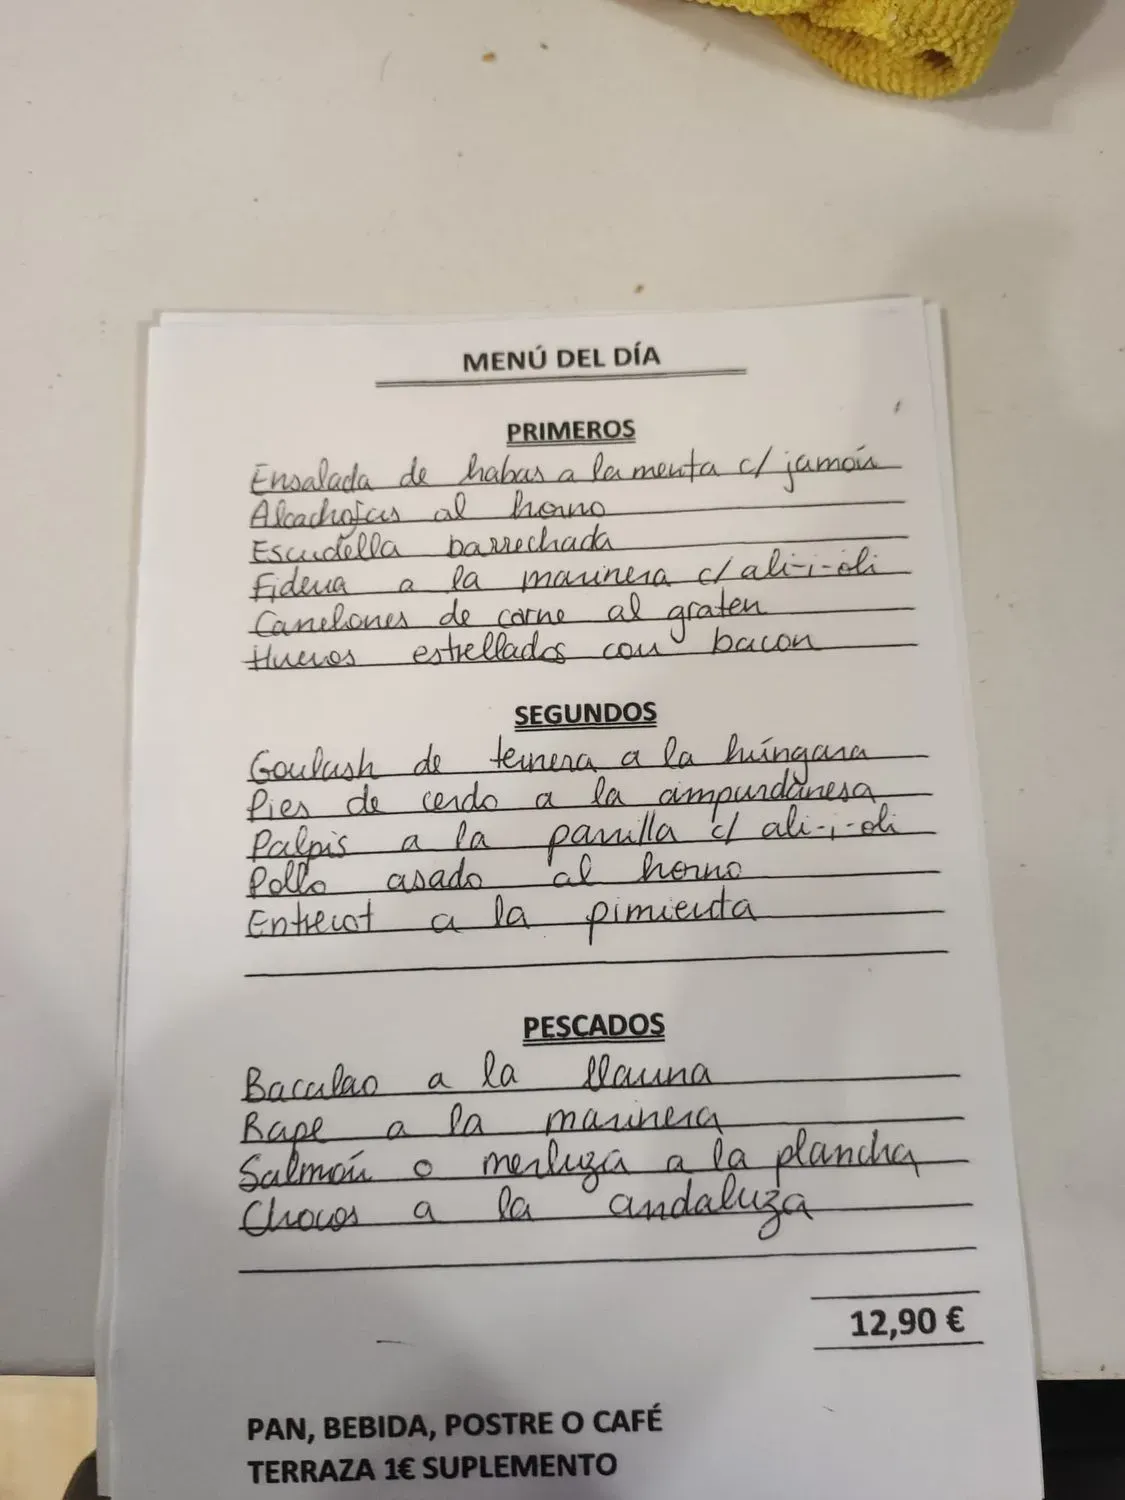 MENÚ DEL DÍA
PRIMEROS
Ensalada de habas a la menta c/ jamón
Alcachofas al horno
Escudella barrechada
Fideua a la marinera c/ ali-i-oli
Canelones de carne al graten
Huevos estrellados con bacon
SEGUNDOS
Goulash de ternera a la húngara
Pies de cerdo a la ampurdanesa
Palpis a la parrilla c/ ali-i-oli
Pollo asado al horno
Entrecot a la pimienta
PESCADOS
Bacalao a la llauna
Rape a la marinera
Salmón o merluza a la plancha
Chocos a la andaluza
12,90 €
PAN, BEBIDA, POSTRE O CAFÉ
TERRAZA 1€ SUPLEMENTO